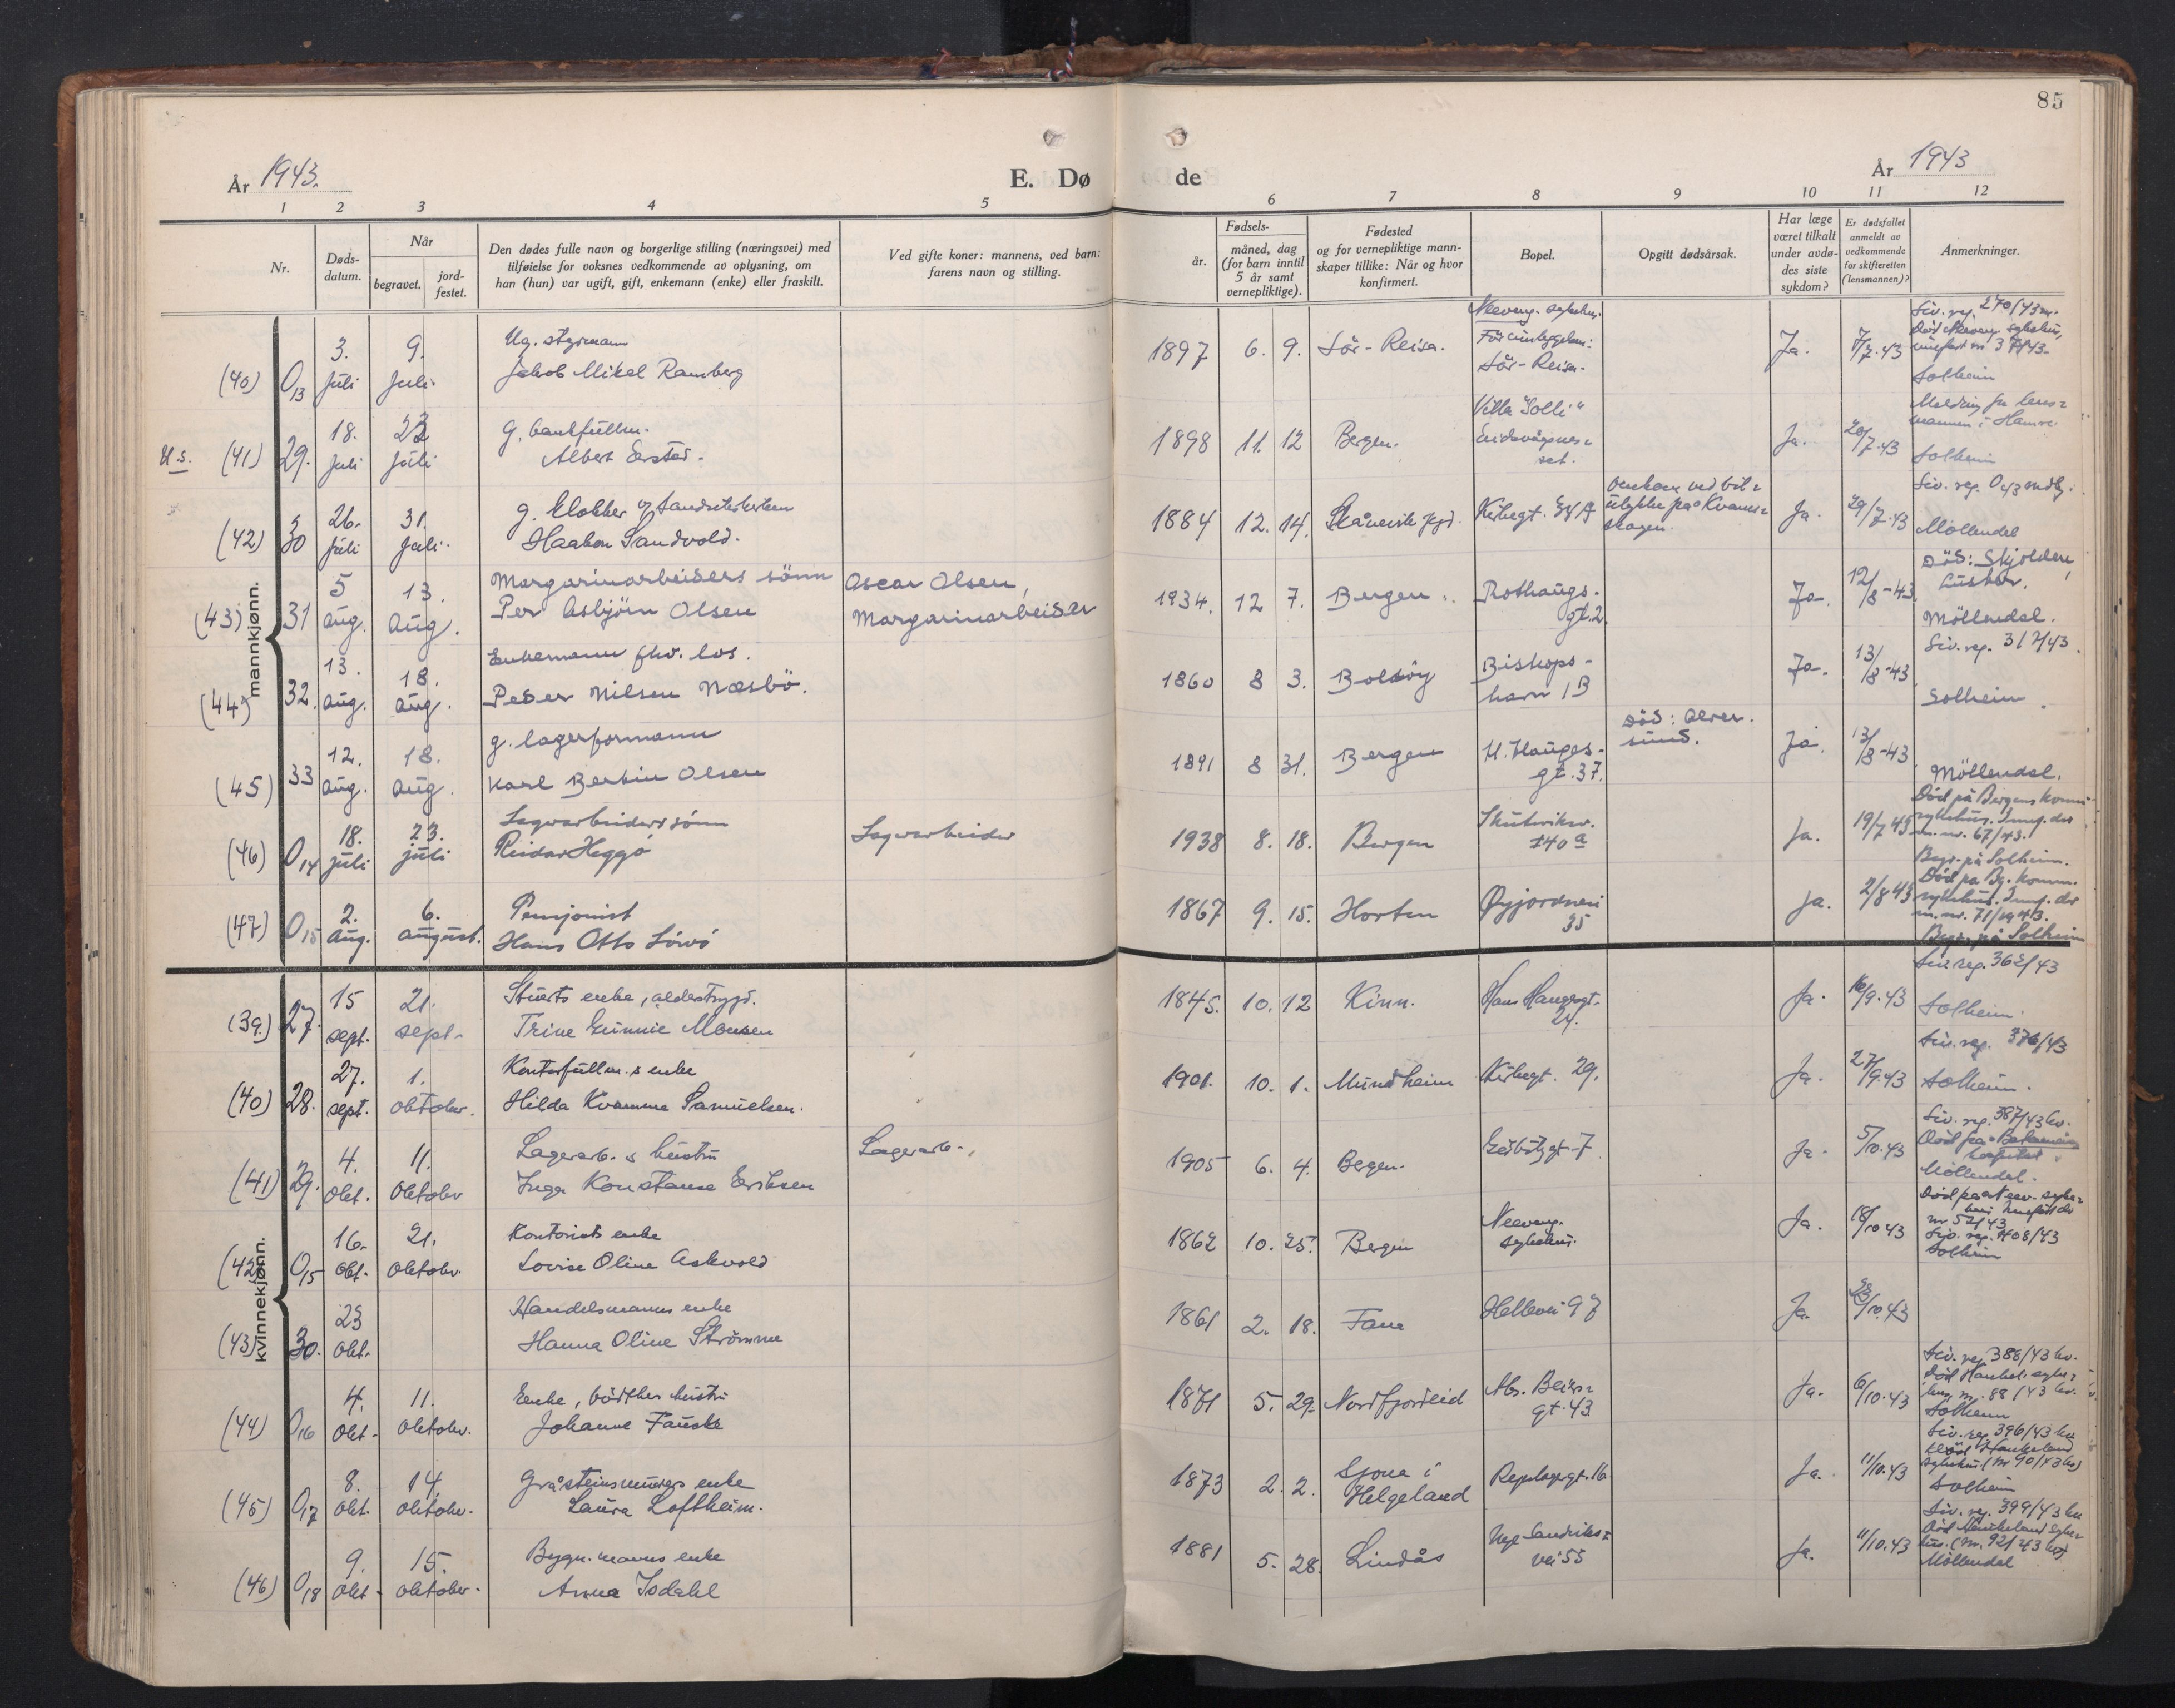 85
År 1943.
E. Dø de
År 1943
1 2 3 4 5 6 7 8 9 10 11 12
Nr.
Døds-
datum.
Når
begravet.
jord-
festet.
Den dødes fulle navn og borgerlige stilling (næringsvei) med
tilføielse for voksnes vedkommende av oplysning, om
han (hun) var ugift, gift, enkemann (enke) eller fraskilt.
Ved gifte koner: mannens, ved barn:
farens navn og stilling.
Fødsels-
år.
måned, dag
(for barn inntil
5 år samt
vernepliktige).
Fødested
og for vernepliktige mann-
skaper tillike: Når og hvor
konfirmert.
Bopel.
Opgitt dødsårsak.
Har læge
været tilkalt
under avdø-
des siste
sykdom?
Er dødsfallet
anmeldt av
vedkommende
for skifteretten
(lensmannen)?
Anmerkninger.
mannkjønn.
(40) 013 3. juli 9. juli Ug. styrmann
Jakob Mikal Ramberg
1897 6. 9. Sör-Reisa. Neeveng. sykehus.
Sör-Reisa.
Ja. 7/7.43 Siv. reg. 270/43 m.
Solheim
U.s. (41) 29. 18. juli 23 juli g. bankfullm.
Albert
1898 11. 12 Bergen. Villa "Solli"
Eidsvågsnes=
set.
Ja. 20/7.43 Melding fra lens=
mannen i Hamre.
Solheim
(42) 30 26. juli 31. juli. g. klokker
Haakon Sandvold.
1884 12. 14. Skånevik Kirkegt.
omkom ved bil=
ulykke på Kvams=
skogen.
Ja. 29/7.43 Siv. reg.
Möllendal
(43) 31 5 aug. 13. aug. Margarinarbeiders sönn
Per Asbjörn Olsen
Oscar Olsen,
Margarinarbeider
1934. 12 7. Bergen. Rothaugs-
gt. 2.
Ja. 12/8-43. Död: Skjolden,
Luster.
Möllendal.
(44) 32. 13. aug. 18. aug. Enkemann fhv. los.
Peder Nilsen Næsbö.
1860 8 3. Bolsöy Bishops-
havn 1 B
Ja. 13/8-43 Siv. reg. 317/43.
Solheim
(45) 33 12. aug. 18. aug. g. lagerformann
Karl Bertin Olsen
1891 8 31. Bergen H. Hauges-
gt. 37.
Död: Alver-
sund.
Ja. 13/8-43 Möllendal.
(46) 014 18. juli 23. juli Lagerarbeiders sönn
Reidar Heggö
Lagerarbeider
1938 8. 18. Bergen Skuteviksv.
140 a
Ja. 19/7 43 Död på Bergens komm.
sykehus. Innf. der
m. nr. 67/43.
Begr. på Solheim.
(47) 015 2. aug. 6. august. Pensjonist
Hans Otto
1867 9. 15. Horten Øyjordsvei
35
Ja. 2/8 43 Död på Bg. komm.
sykehus. Innf. der
m. nr. 71/1943.
Begr. på Solheim
kvinnekjønn.
(39.) 27. 15 sept. 21. sept. Stuerts enke, alderstrygd.
Trine Gunnie Monsen
1845. 10. 12 Kinn. Hans Haugesgt.
24.
Ja. 16/9.43 Siv. reg. 362/43
Solheim.
(40) 28. 27. sept. 1. oktober. Kontorfullm.s enke
Hilda Kvamme Samuelsen.
1901. 10. 1. Mundheim Kirkegt. 29.
Ja. 27/9.43 Siv. reg. 376/43
Solheim.
(41) 29. 4. okt. 11. oktober Lagerarb.s hustru
Inga Konstanse Eriksen
Lagerarb.
1905 6. 4. Bergen.
Ja. 5/10.43 Siv. reg. 387/43 kv.
Död på Betanien
hospital.
Möllendal.
(42) 015 16. okt. 21. oktober. Kontorists enke
Lovise Oline Askvold
1862 10. 25. Bergen Neeveng.
sykehus.
Ja. 18/10 43 Död på Neev. syke=
hus innfört der
nr 52/43
Siv. reg. 408/43
Solheim
(43) 30. 23 okt. Handelsmanns enke
Hanna Oline Strömme
1861 2. 18. Fana Hellevei 97
Ja. 23/10.43
(44) 016 4. okt. 11. oktober. Enke, bödkers hustru
Johanne Fauske
1871 5. 29. Nordfjordeid Abs. Beiers=
gt. 43
Ja. 6/10.43 Siv. reg. 388/43 kv.
Död Haukel. syke=
hus, nr. 88/43 kv.
Solheim
(45) 017 8. okt. 14. oktober. Gråsteinsmurers enke
Laura Loftheim.
1873 2. 2. Sjona i
Helgeland
Repslagergt. 16
Ja. 11/10.43 Siv. reg. 396/43 kv
Död Haukeland
sykehus. (nr 90/43 kv)
Solheim
(46) 018 9. okt. 15. oktober. Bygn. manns enke
Anna Isdahl
1881 5. 28. Lindås Nye Sandviks=
vei 55
Ja. 11/10.43 Siv. reg. 399/43 kv
Död Haukeland syke=
hus. (nr. 92/43 kv)
Möllendal